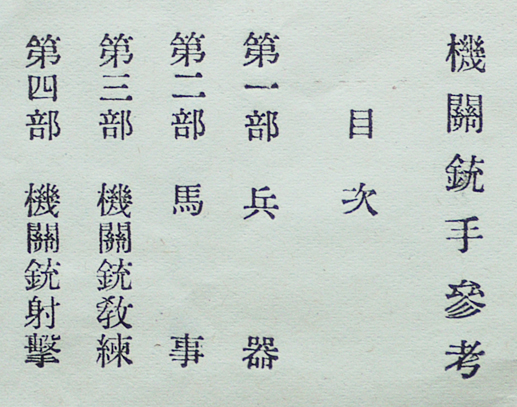 機關銃手參考
目次
第一部 兵器
第二部 馬事
第三部 機關銃敎練
第四部 機關銃射擊